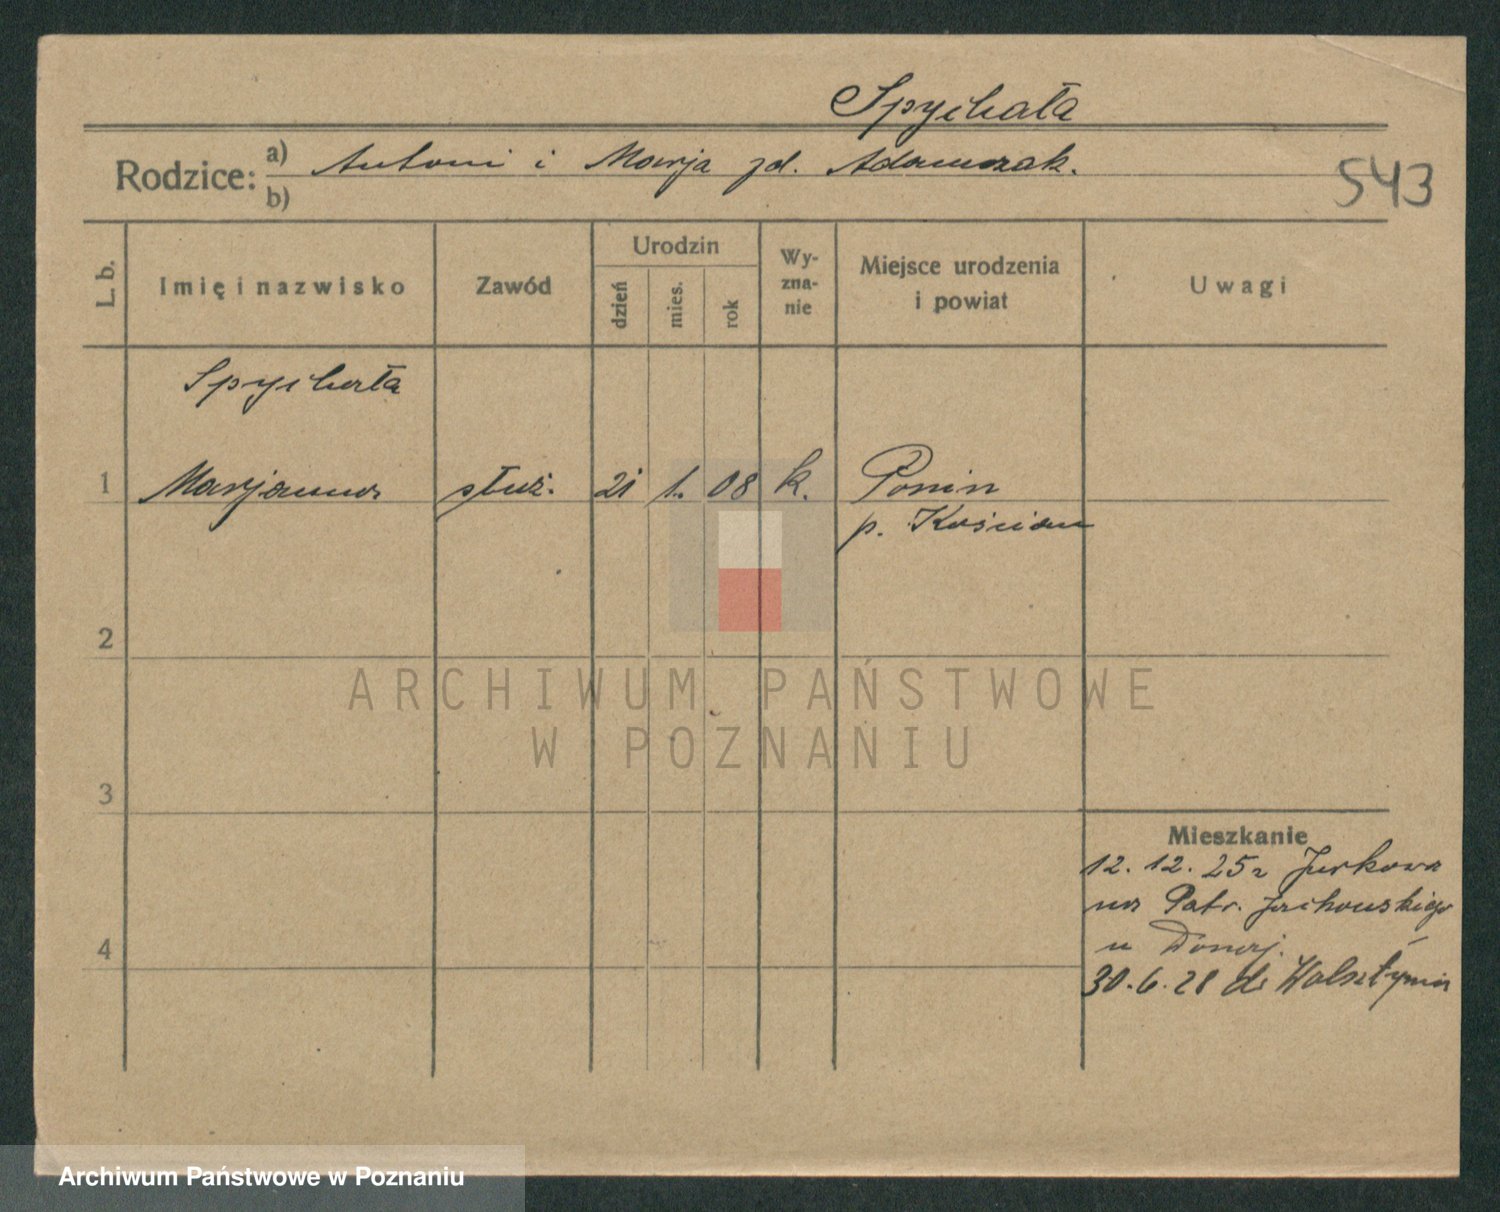 Spychała
Rodzice: a) Antoni i Marja zd. Adamczak.
b)
543
L. b.
Imię i nazwisko
Zawód
Urodzin
dzień
mies.
rok
Wy-
zna-
nie
Miejsce urodzenia
i powiat
Uwagi
Spychała
1 Marjanna służ. 21 1. 08 k. Ponin
p. Kościan
2
3
4
Mieszkanie
12. 12. 25r Jurkowa
na Patr. Jackowskiego
u
30. 6. 28 do Wolsztyna
ARCHIWUM PAŃSTWOWE
W POZNANIU
Archiwum Państwowe w Poznaniu